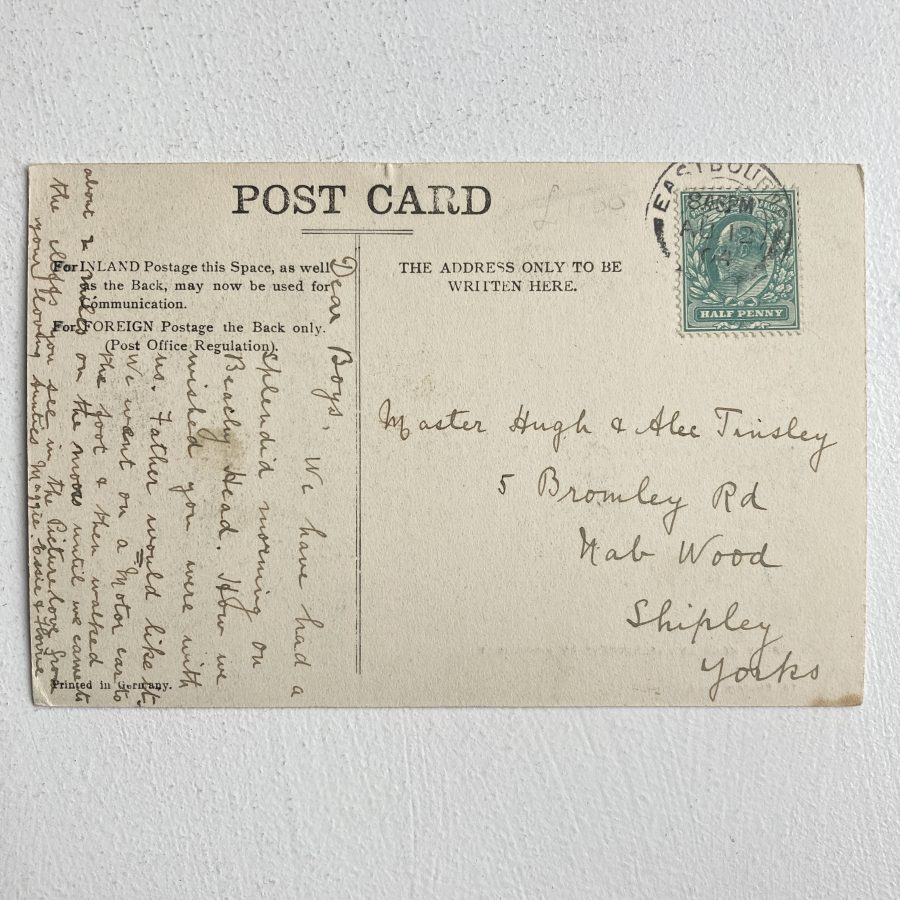 POST CARD
For INLAND Postage this Space, as well
as the Back, may now be used for
Communication.
For FOREIGN Postage the Back only.
(Post Office Regulation).
THE ADDRESS ONLY TO BE
WRITTEN HERE.
EASTBOURNE
8.45PM
AU 12
HALF PENNY
Dear Boys. We have had a
splendid morning on
Beachy Head. How we
wished you were with
us. Father would like it.
We went on a Motor car to
the foot & then walked
about 2 miles on the moors until we came to
the cliffs you see in the Picture love from
your loving Aunties Maggie Essie & Florrie
Master Hugh & Alec Tinsley
5 Bromley Rd
Nab Wood
Shipley
Yorks
Printed in Germany.